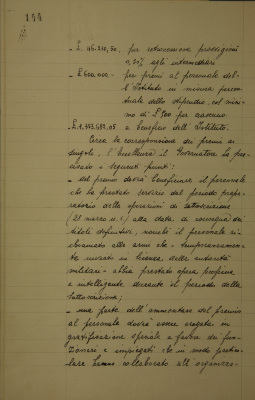 144
- £. 46.310,50. per retrocessione provvigioni
0,20% agli intermediari
- £ 600.000.- per premi al personale del-
l'Istituto in misura percen-
tuale dello stipendio, col mini-
mo di £ 500 per ciascuno
- £. 1.553.689,05 a beneficio dell'Istituto.
Circa la corresponsione dei premi ai
singoli, l'Eccellenza il Governatore ha pre-
cisato i seguenti punti:
- del premio dovrà beneficiare il personale
che ha prestato servizio dal periodo prepa-
ratorio delle operazioni di sottoscrizione
(28 marzo u.s.) alla data di consegna dei
titoli definitivi, nonchè il personale ri-
chiamato alle armi che - temporaneamen-
te inviato in licenza dalle autorità
militari - abbia prestato opera proficua
e intelligente durante il periodo della
sottoscrizione;
- una parte dell'ammontare del premio
al personale dovrà essere erogata in
gratificazione speciale a favore dei fun-
zionari e impiegati che in modo partico-
lare hanno collaborato all'organizza-